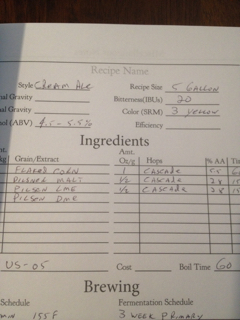 Recipe Name
Style CREAM ALE Recipe Size 5 GALLON
nal Gravity Bitterness(IBUs) 20
al Gravity Color (SRM) 3 YELLOW
hol (ABV) 4.5 - 5.5% Efficiency
Ingredients
nt. Amt.
kg Grain/Extract Oz/g Hops %AA Tim
FLAKED CORN 1 CASCADE 5.5 60
PILSNER MALT 1/2 CASCADE
PILSEN LME 1/2 CASCADE
PILSEN DME
US-05 Cost Boil Time 60
Brewing
Schedule Fermentation Schedule
MIN 155F 3 WEEK PRIMARY